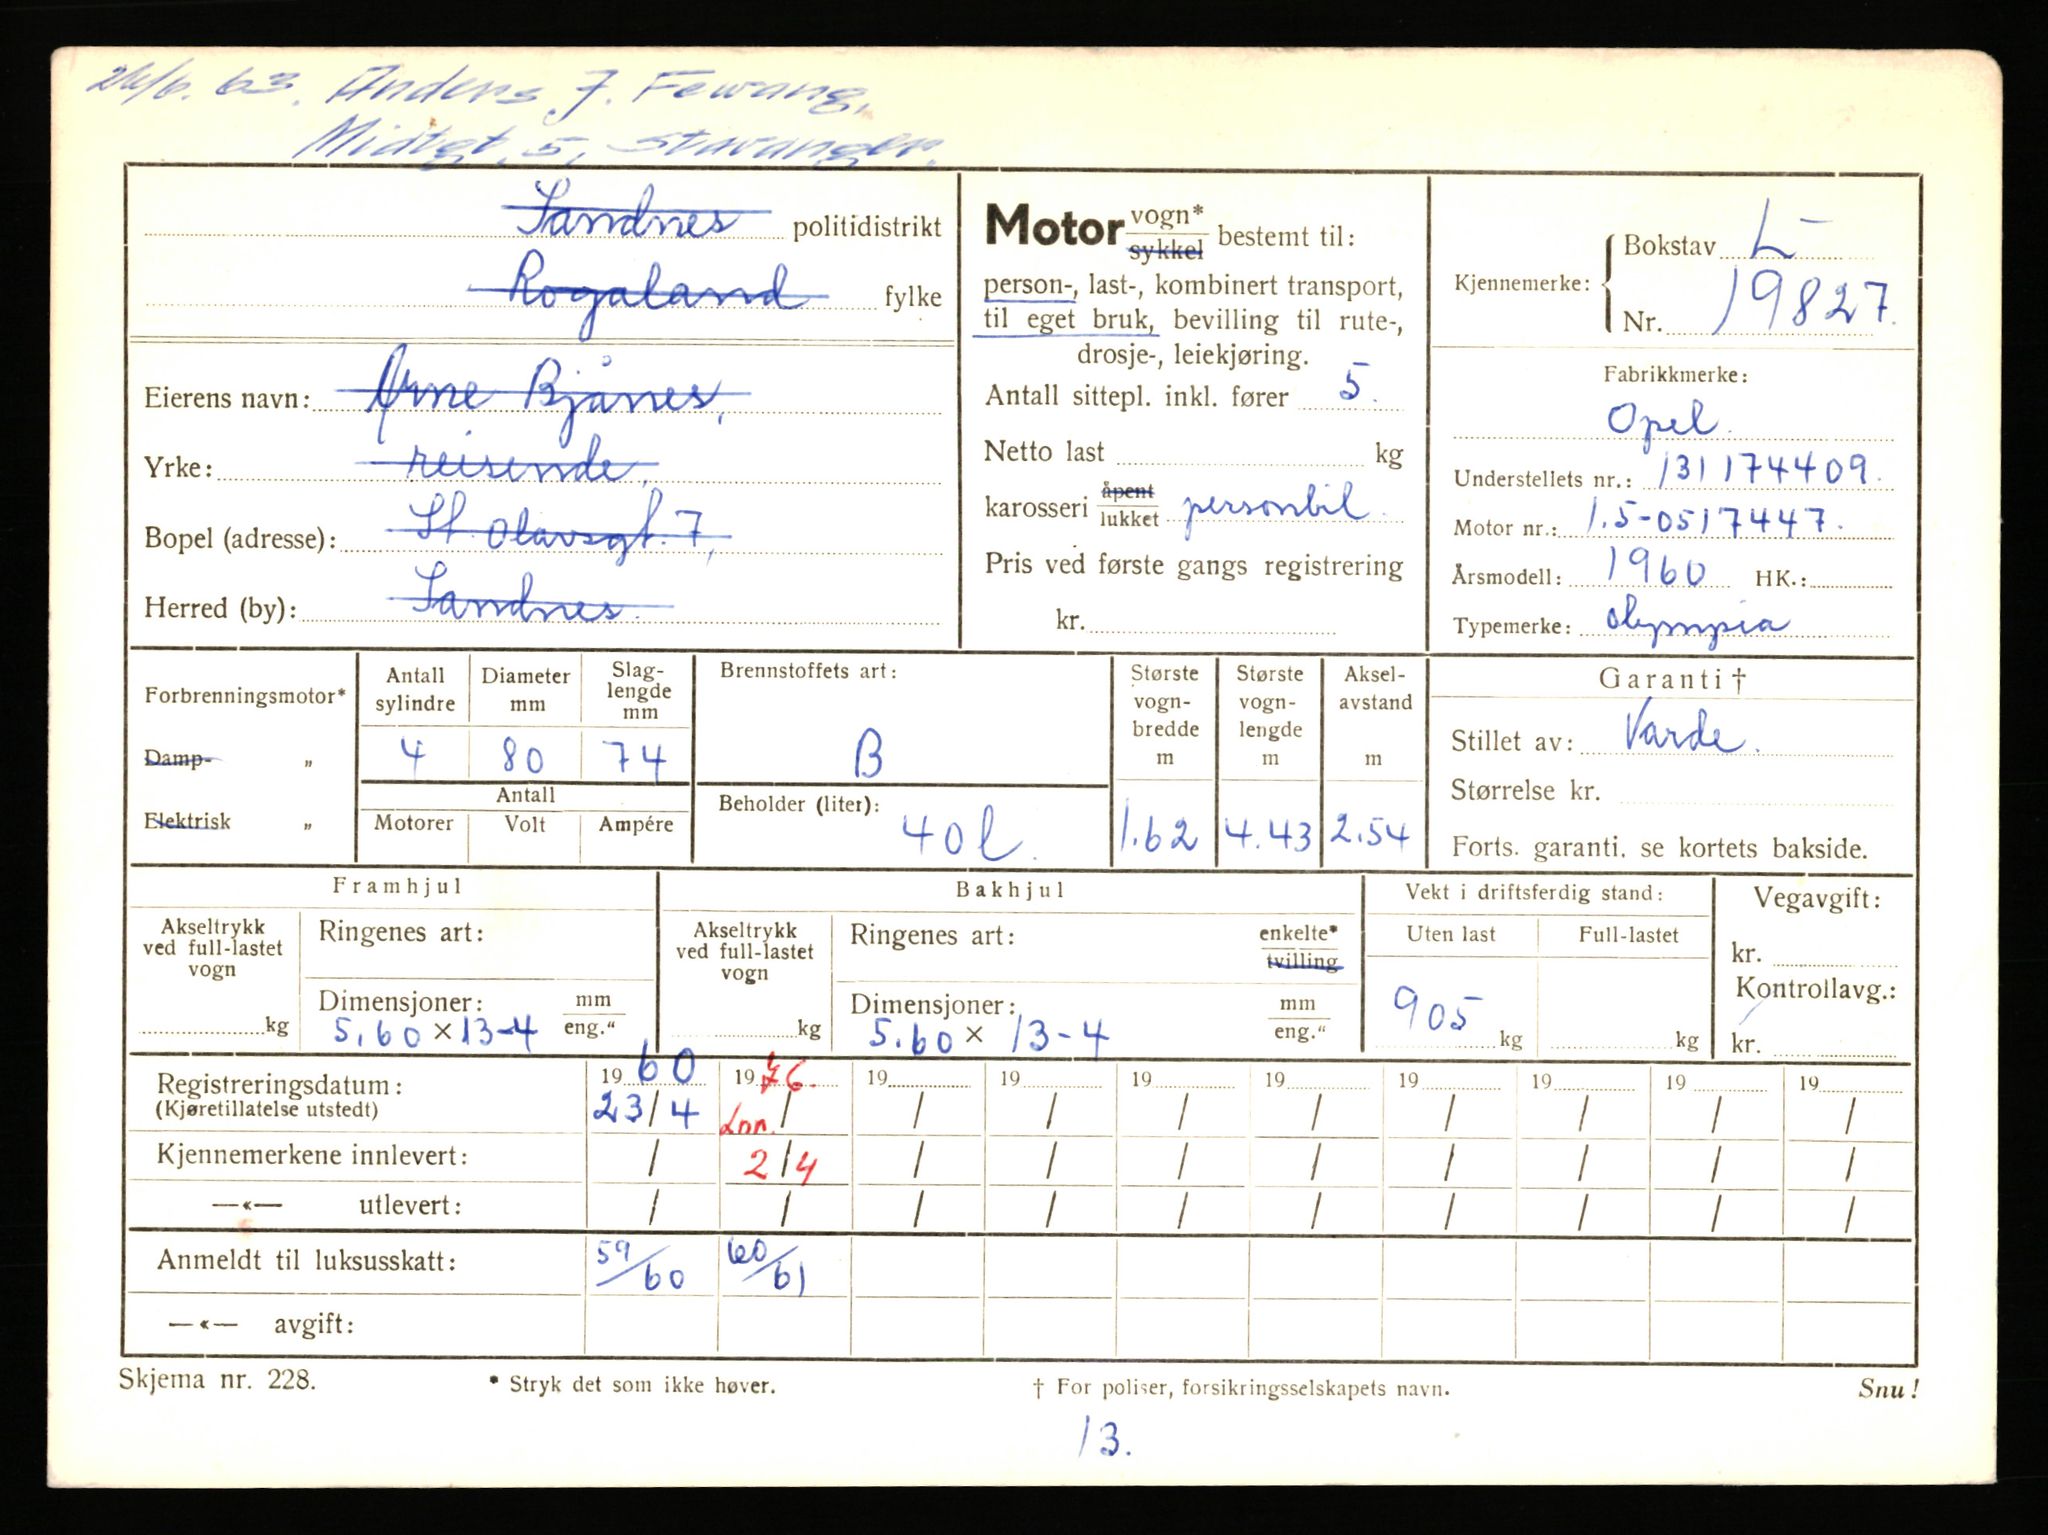 26/6. 63. Anders J. Fewang,
Midtgt. 5, Stavanger.
Sandnes politidistrikt
Rogaland fylke
Eierens navn: Arne Bjånes,
Yrke: reisende,
Bopel (adresse): St. Olavsgt. 7,
Herred (by): Sandnes.
Motor vogn* sykkel bestemt til:
person-, last-, kombinert transport,
til eget bruk, bevilling til rute-,
drosje-, leiekjøring.
Antall sittepl. inkl. fører 5.
Netto last kg
karosseri åpent lukket personbil.
Pris ved første gangs registrering
kr.
Kjennemerke: Bokstav L-
Nr. 19827.
Fabrikkmerke:
Opel.
Understellets nr.: 131174409.
Motor nr.: 1.5-0517447.
Årsmodell: 1960 HK.:
Typemerke: Olympia
Forbrenningsmotor*
Damp- „
Elektrisk „
Antall sylindre Diameter mm Slag-lengde mm
4 80 74
Antall
Motorer Volt Ampére
Brennstoffets art:
B
Beholder (liter):
40 l.
Største vogn-bredde m
1.62
Største vogn-lengde m
4.43
Aksel-avstand m
2.54
Garanti †
Stillet av: Varde.
Størrelse kr.
Forts. garanti. se kortets bakside.
Framhjul
Akseltrykk ved full-lastet vogn
kg
Ringenes art:
Dimensjoner: mm eng.“
5,60 × 13-4
Bakhjul
Akseltrykk ved full-lastet vogn
kg
Ringenes art: enkelte* tvilling
Dimensjoner: mm eng.“
5.60 × 13-4
Vekt i driftsferdig stand:
Uten last Full-lastet
905 kg kg
Vegavgift:
kr.
Kontrollavg.:
kr.
Registreringsdatum: 19 60 19 76. 19 19 19 19 19 19 19 19
(Kjøretillatelse utstedt) 23/4 Inn. / / / / / / / / /
Kjennemerkene innlevert: / 2/4 / / / / / / / /
—«— utlevert: / / / / / / / / / /
Anmeldt til luksusskatt: 59/60 60/61
—«— avgift:
Skjema nr. 228. * Stryk det som ikke høver. † For poliser, forsikringsselskapets navn. Snu!
13.